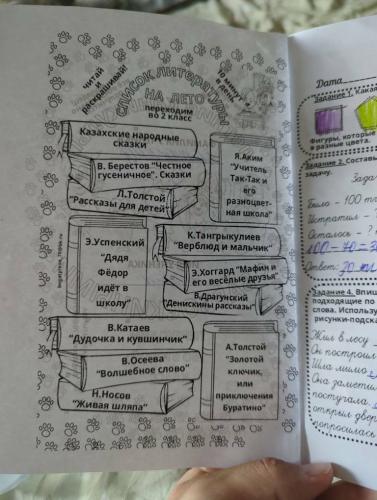 читай
и
раскрашивай
СПИСОК ЛИТЕРАТУРЫ
НА ЛЕТО
10 минут
в день
переходим
во 2 класс
Казахские народные
сказки
В. Берестов "Честное
гусеничное". Сказки
Л.Толстой
"Рассказы для детей"
Я.Аким
"Учитель
Так-Так и
его
разноцвет-
ная школа"
Э.Успенский
"Дядя
Фёдор
идёт в
школу"
К.Тангрыкулиев
"Верблюд и мальчик"
Э.Хоггард "Мафин и
его весёлые друзья"
В.Драгунский
"Денискины рассказы"
В.Катаев
"Дудочка и кувшинчик"
В.Осеева
"Волшебное слово"
Н.Носов
"Живая шляпа"
А.Толстой
"Золотой
ключик,
или
приключения
Буратино"
Дата
Задание 1. Кака
Фигуры, которые
в разные цвета.
Задание 2. Составь
задачу.
Зада
Было - 100 т
Истратил -
Осталось - ?
100 - 70 = 3
Ответ:
Задание 4. Впиш
подходящие по
слова. Использу
рисунки-подска
Жил в лесу
Он построил
Шла мимо
Она заметил
постучала.
открыл двер
попросилась